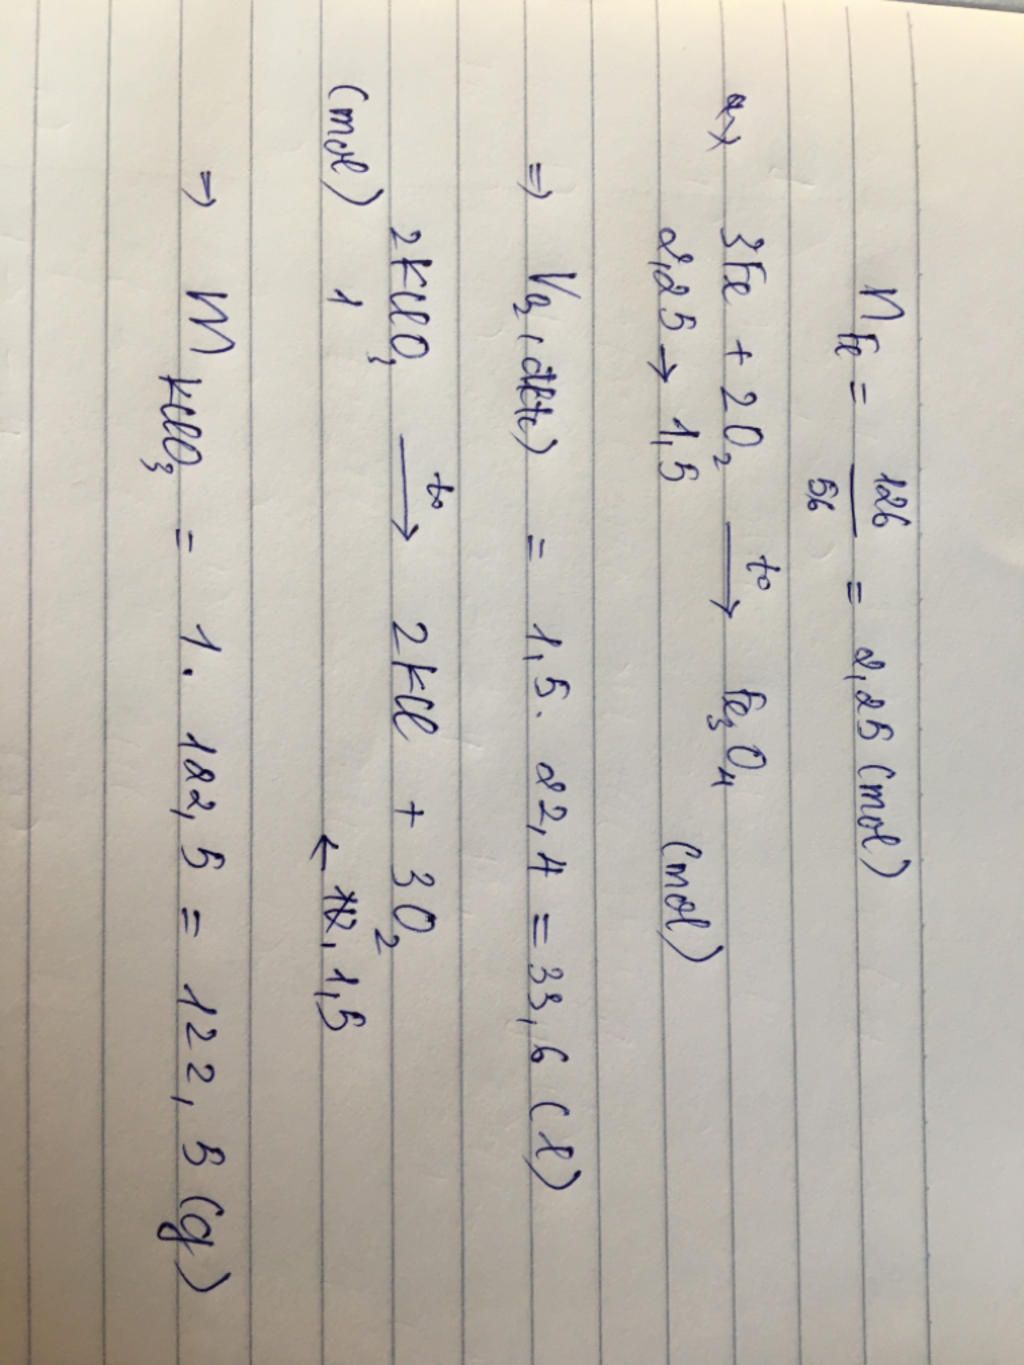 n Fe = 126/56 = 2,25 (mol)
a, 3Fe + 2O₂ —t°→ Fe₃O₄
2,25 → 1,5 (mol)
⇒ V O₂ (đktc) = 1,5 . 22,4 = 33,6 (l)
2KClO₃ —t°→ 2KCl + 3O₂
(mol) 1 ← 1,5
⇒ m KClO₃ = 1 . 122,5 = 122,5 (g)